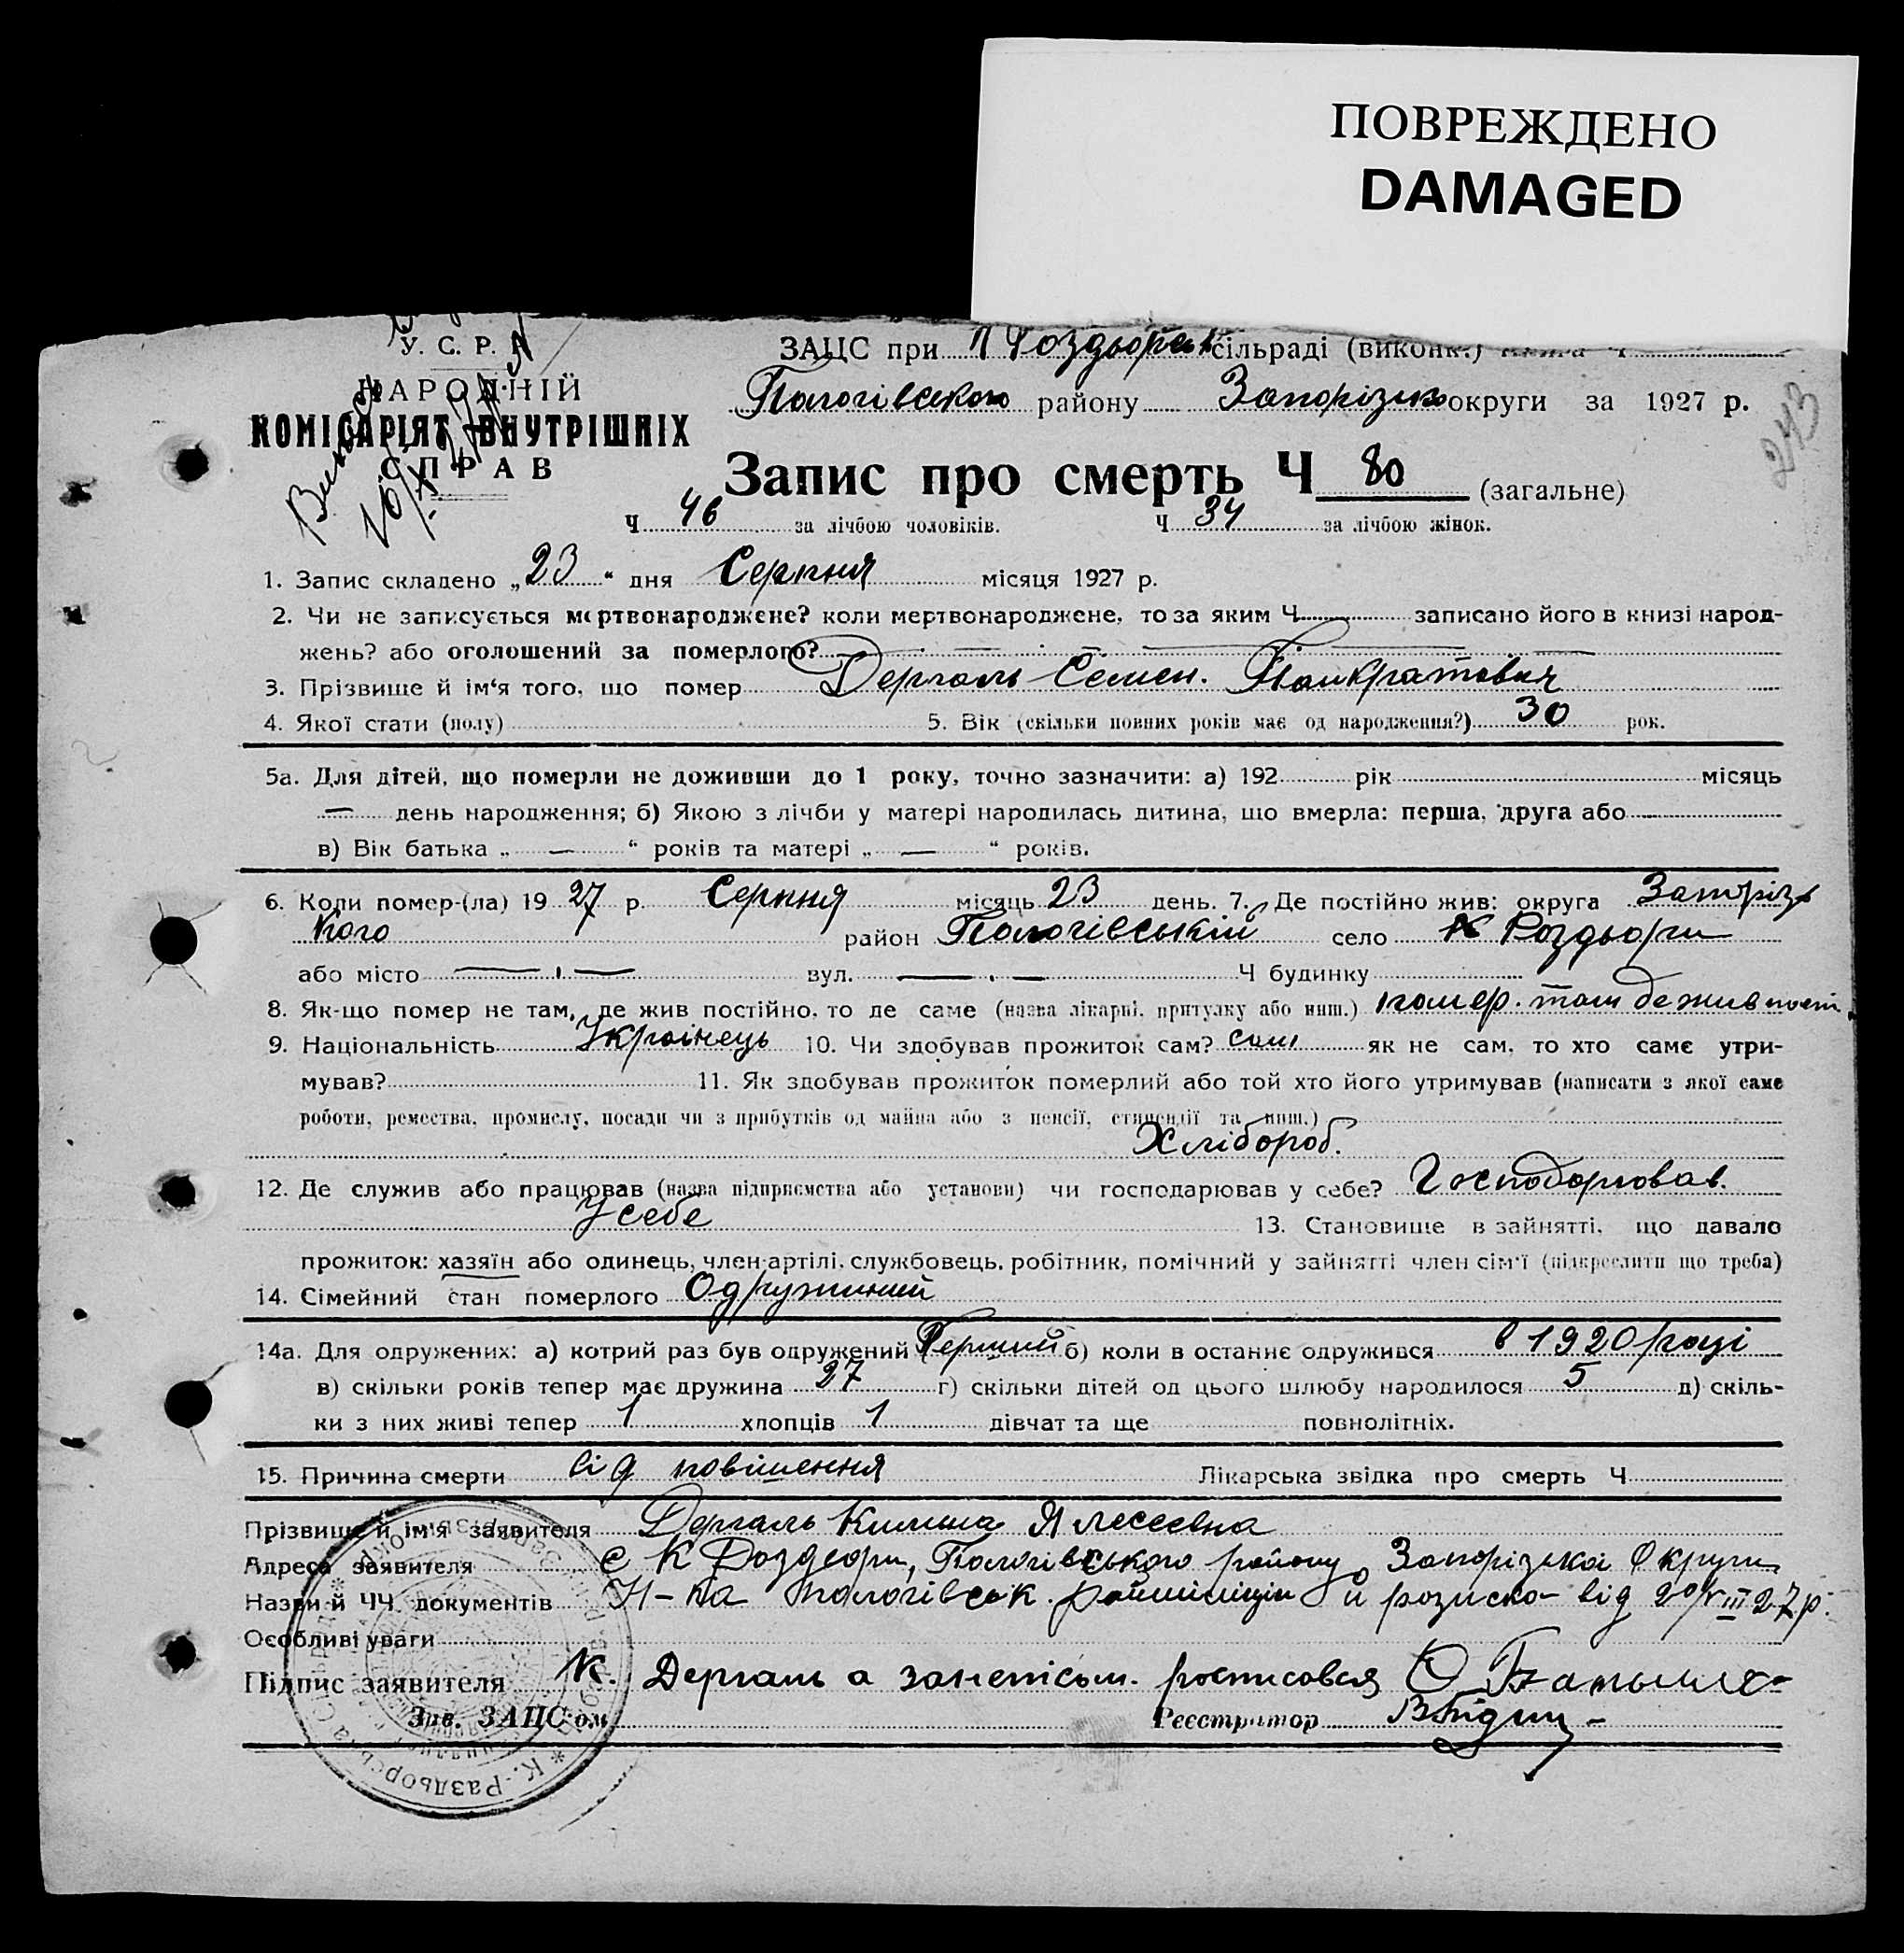 ПОВРЕЖДЕНО
DAMAGED
У. С. Р. Р.
НАРОДНІЙ
КОМІСАРІЯТ ВНУТРІШНІХ
СПРАВ
ЗАЦС при Роздьорськ сільраді (виконк.)
Пологівського району Запорізько округи за 1927 р.
243
Запис про смерть Ч 80 (загальне)
Ч 46 за лічбою чоловіків. Ч 34 за лічбою жінок.
1. Запис складено „23“ дня Серпня місяця 1927 р.
2. Чи не записується мертвонароджене? коли мертвонароджене, то за яким Ч записано його в книзі народ-
жень? або оголошений за померлого?
3. Прізвище й ім‘я того, що помер Дергаль Семен. Панкратовия
4. Якої стати (полу) 5. Вік (скільки повних років має од народження?) 30 рок.
5а. Для дітей, що померли не доживши до 1 року, точно зазначити: а) 192 рік місяць
— день народження; б) Якою з лічби у матері народилась дитина, що вмерла: перша, друга або
в) Вік батька „ — “ років та матері „ — “ років.
6. Коли помер-(ла) 19 27 р. Серпня місяць 23 день. 7. Де постійно жив: округа Запорізь
кого район Пологівський село К Роздьори
або місто — вул. — Ч будинку
8. Як-що помер не там, де жив постійно, то де саме (назва лікарні, притулку або инш.) помер. там де жив пост.
9. Національність Українець 10. Чи здобував прожиток сам? сам як не сам, то хто саме утри-
мував? 11. Як здобував прожиток померлий або той хто його утримував (написати з якої саме
роботи, ремества, промислу, посади чи з прибутків од майна або з пенсії, стипендії та инш.)
Хлібороб.
12. Де служив або працював (назва підприємства або установи) чи господарював у себе? Господорював.
У себе 13. Становище в зайнятті, що давало
прожиток: хазяїн або одинець, член-артілі, службовець, робітник, помічний у зайнятті член сім‘ї (підкреслити що треба)
14. Сімейний стан померлого Одружиний
14а. Для одружених: а) котрий раз був одружений Перший б) коли в останнє одружився в 1920 році
в) скільки років тепер має дружина 27 г) скільки дітей од цього шлюбу народилося 5 д) скіль-
ки з них живі тепер 1 хлопців 1 дівчат та ще повнолітніх.
15. Причина смерти від повішення Лікарська звідка про смерть Ч
Прізвище й ім‘я заявителя Дергаль Килина Ялесеевна
Адреса заявителя с К Роздеори, Пологівського району Запорізької Округи
Назви й ЧЧ документів Н-ка Пологівськ. райміліціи й розиско від 20/VIII 27 р.
Особливі уваги
Підпис заявителя К. Дергаль а
Зав. ЗАЦС‘ом Реєстратор
К.-Раздьорська